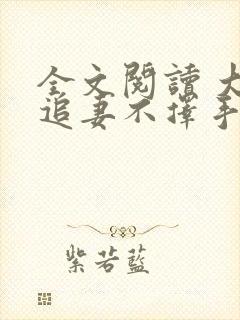 全文閱讀 大
追妻不擇手
紫若藍